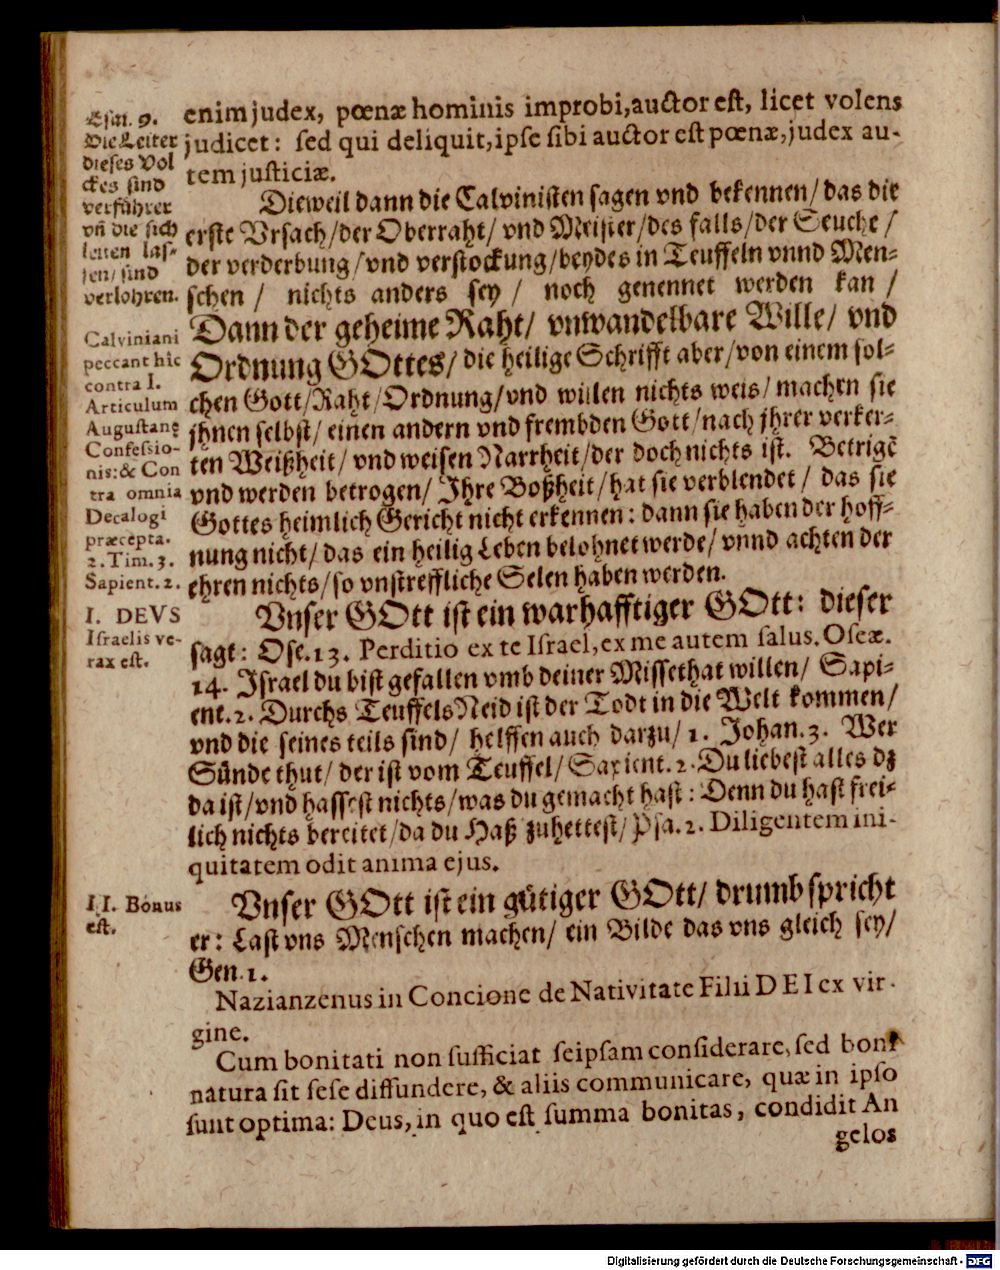 Esai. 9.
Die Leiter
dieses Vol
ckes sind
verführer
vñ die sich
leiten las-
sen/ sind
verlohren.
Calviniani
peccant hic
contra I.
Articulum
Augustanę
Confessio-
nis: & Con
tra omnia
Decalogi
præcepta.
2. Tim. 3.
Sapient. 2.
I. DEVS
Israelis ve-
rax est.
II. Bonus
est.
enim judex, pœnæ hominis improbi, auctor est, licet volens
judicet: sed qui deliquit, ipse sibi auctor est pœnæ, judex au-
tem justiciæ.
Dieweil dann die Calvinisten sagen vnd bekennen/ das die
erste Vrsach/ der Oberraht/ vnd Meister/ des falls/ der Seuche/
der verderbung/ vnd verstockung/ beydes in Teuffeln vnnd Men-
schen/ nichts anders sey/ noch genennet werden kan/
Dann der geheime Raht/ vnwandelbare Wille/ vnd
Ordnung GOttes/ die heilige Schrifft aber/ von einem sol-
chen Gott/ Raht/ Ordnung/ vnd willen nichts weis/ machen sie
jhnen selbst/ einen andern vnd frembden Gott/ nach jhrer verker-
ten Weißheit/ vnd weisen Narrheit/ der doch nichts ist. Betrigẽ
vnd werden betrogen/ Jhre Boßheit/ hat sie verblendet/ das sie
Gottes heimlich Gericht nicht erkennen: dann sie haben der hoff-
nung nicht/ das ein heilig Leben belohnet werde/ vnnd achten der
ehren nichts/ so vnstreffliche Selen haben werden.
Vnser GOtt ist ein warhafftiger GOtt: dieser
sagt: Ose. 13. Perditio ex te Israel, ex me autem salus. Oseæ.
14. Israel du bist gefallen vmb deiner Missethat willen/ Sapi-
ent. 2. Durchs Teuffels Neid ist der Todt in die Welt kommen/
vnd die seines teils sind/ helffen auch darzu/ 1. Johan. 3. Wer
Sünde thut/ der ist vom Teuffel/ Sapient. 2. Du liebest alles dz
da ist/ vnd hassest nichts/ was du gemacht hast: Denn du hast frei-
lich nichts bereitet/ da du Haß zu hettest/ Psa. 2. Diligentem ini-
quitatem odit anima ejus.
Vnser GOtt ist ein gütiger GOtt/ drumb spricht
er: Last vns Menschen machen/ ein Bilde das vns gleich sey/
Gen. 1.
Nazianzenus in Concione de Nativitate Filii DEI ex vir-
gine.
Cum bonitati non sufficiat seipsam considerare, sed boni
natura sit sese diffundere, & aliis communicare, quæ in ipso
sunt optima: Deus, in quo est summa bonitas, condidit An
gelos
Digitalisierung gefördert durch die Deutsche Forschungsgemeinschaft - DFG